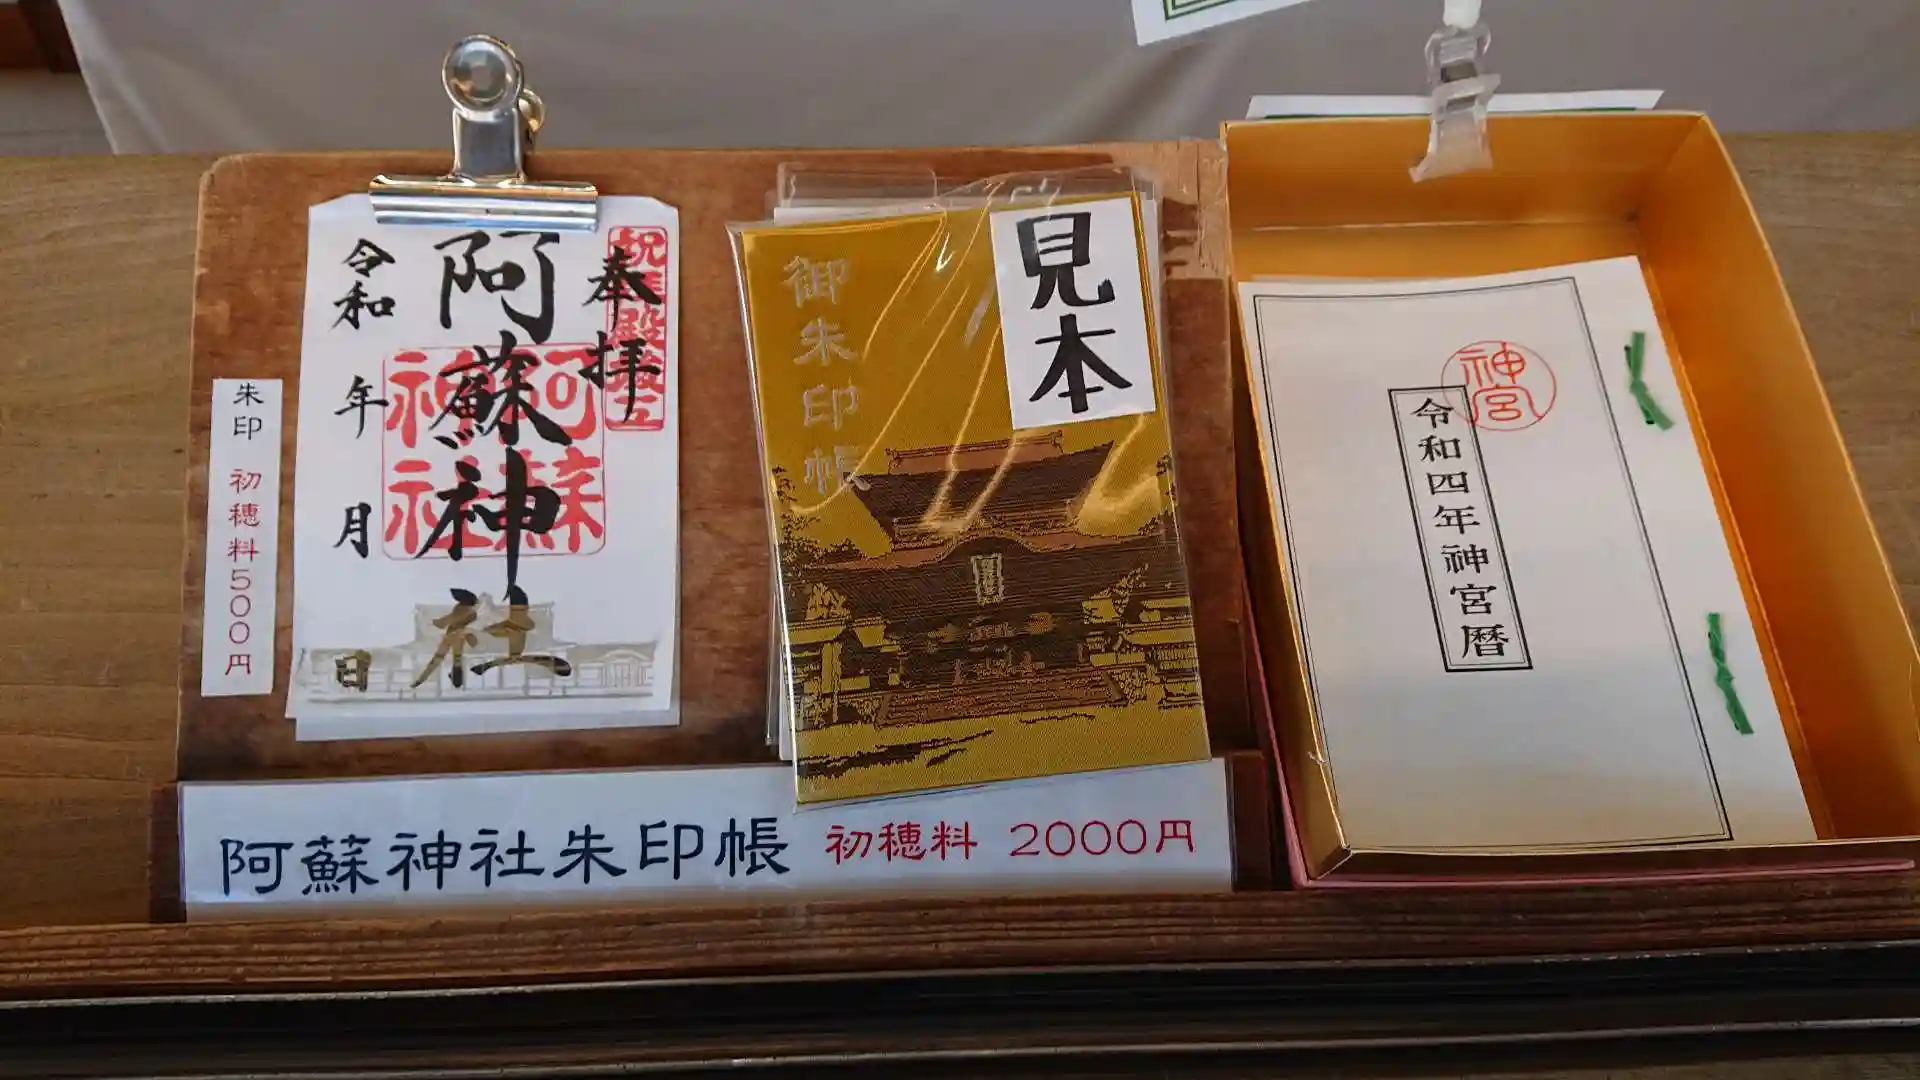 朱印 初穂料500円
奉拝
祝拝殿竣工
阿蘇神社
阿蘇神社
令和 年 月 日
御朱印帳
見本
阿蘇神社朱印帳 初穂料 2000円
神宮
令和四年神宮暦